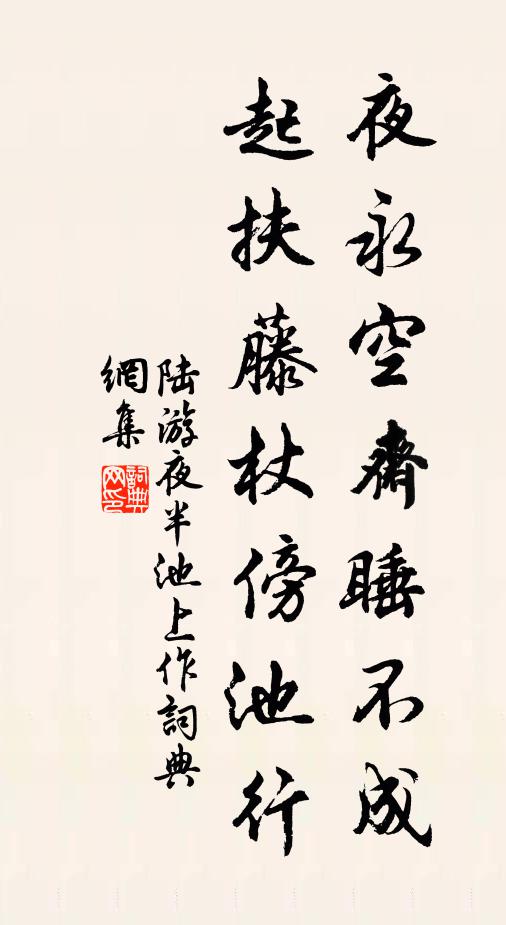 夜永空齋睡不成
起扶藤杖傍池行
陆游夜半池上作詞典
網集
詞典
网印